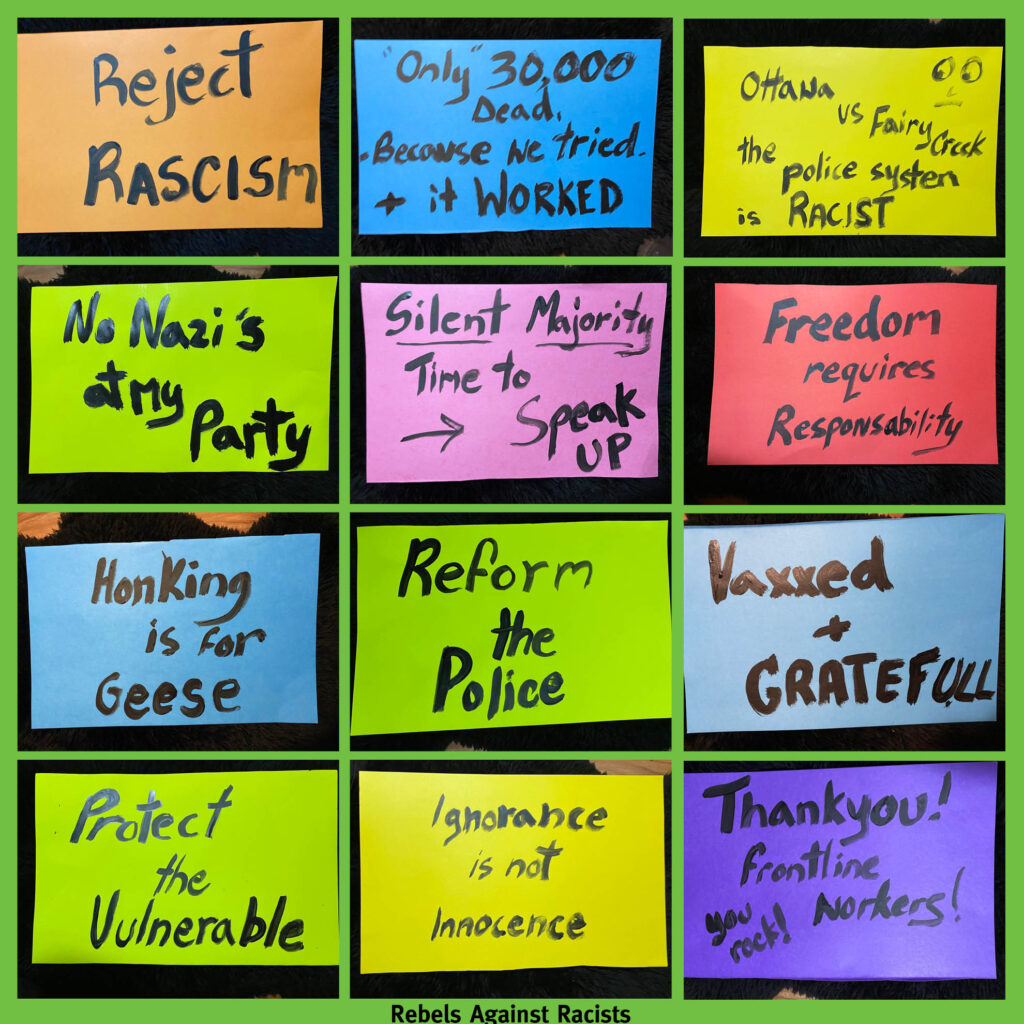 Reject
RASCISM
"Only" 30,000
Dead.
-Because we tried.
+ it WORKED
Ottawa
vs Fairy Creek
the police system
is RACIST
No Nazi's
at My
Party
Silent Majority
Time to
→ Speak
UP
Freedom
requires
Responsability
Honking
is for
Geese
Reform
the
Police
Vaxxed
+
GRATEFULL
Protect
the
Vulnerable
Ignorance
is not
Innocence
Thankyou!
frontline
workers!
you
rock!
Rebels Against Racists